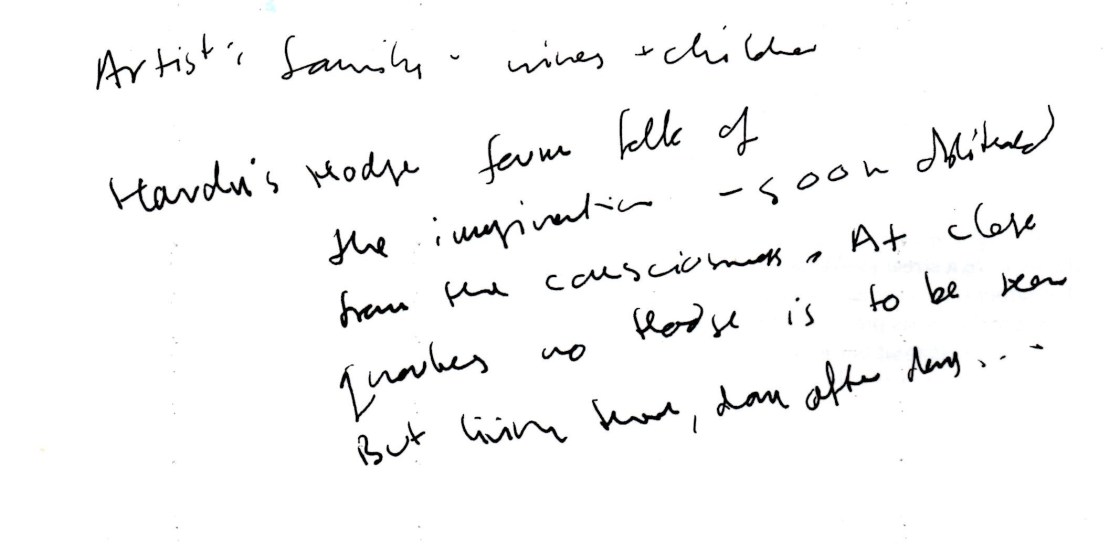 Artist's family - wives + children
Hardy's Hodge farm folk of
the imagination - soon obliterated
from the consciousness. At close
quarters no Hodge is to be seen
But living there, day after day....